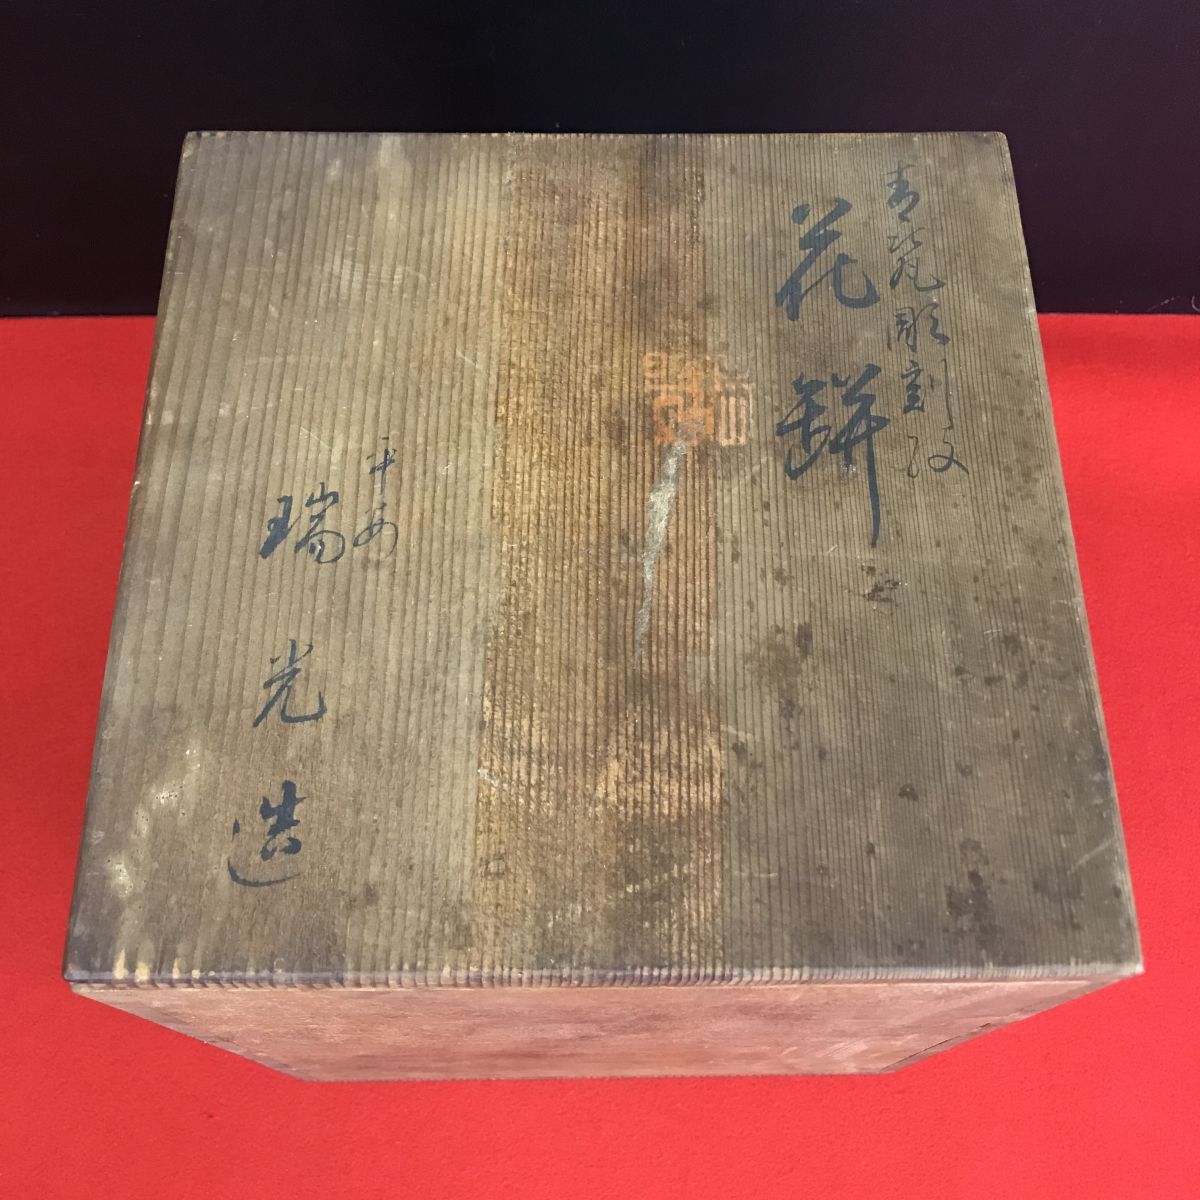 青瓷彫刻紋
花缾
平安
瑞光造